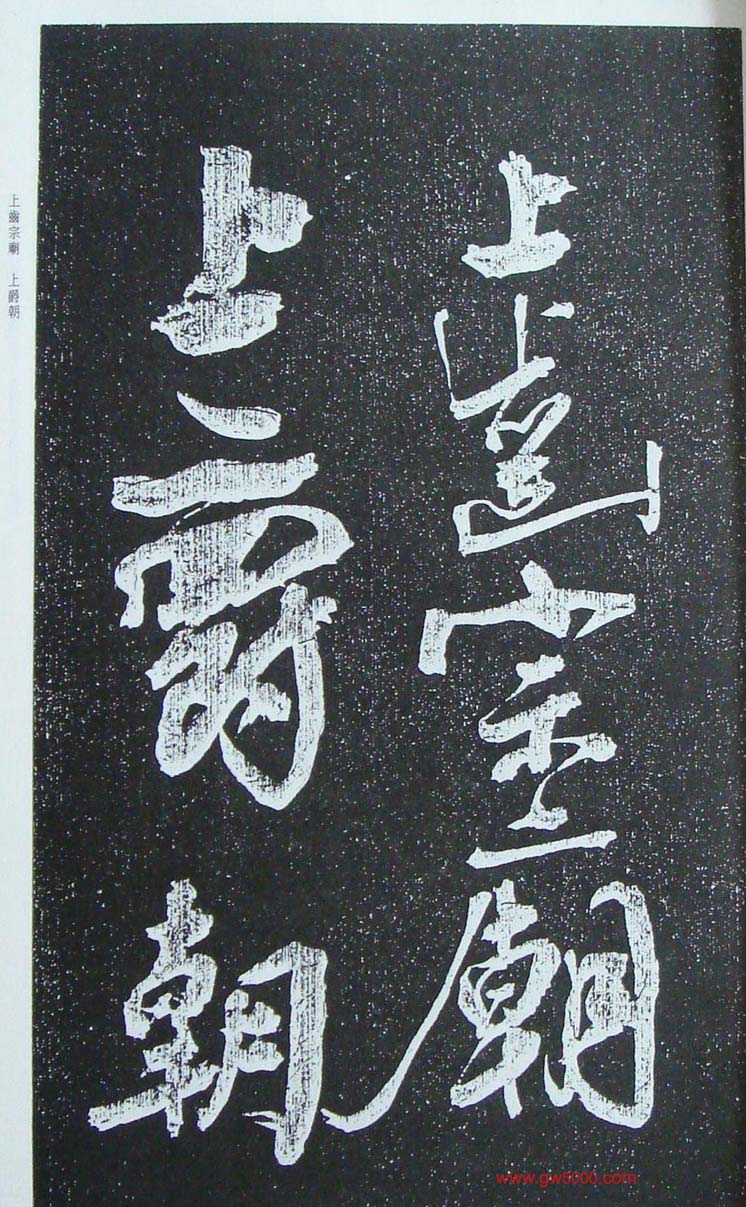 上齒宗廟
上爵朝
上齒宗廟　上爵朝
www.gw5000.com